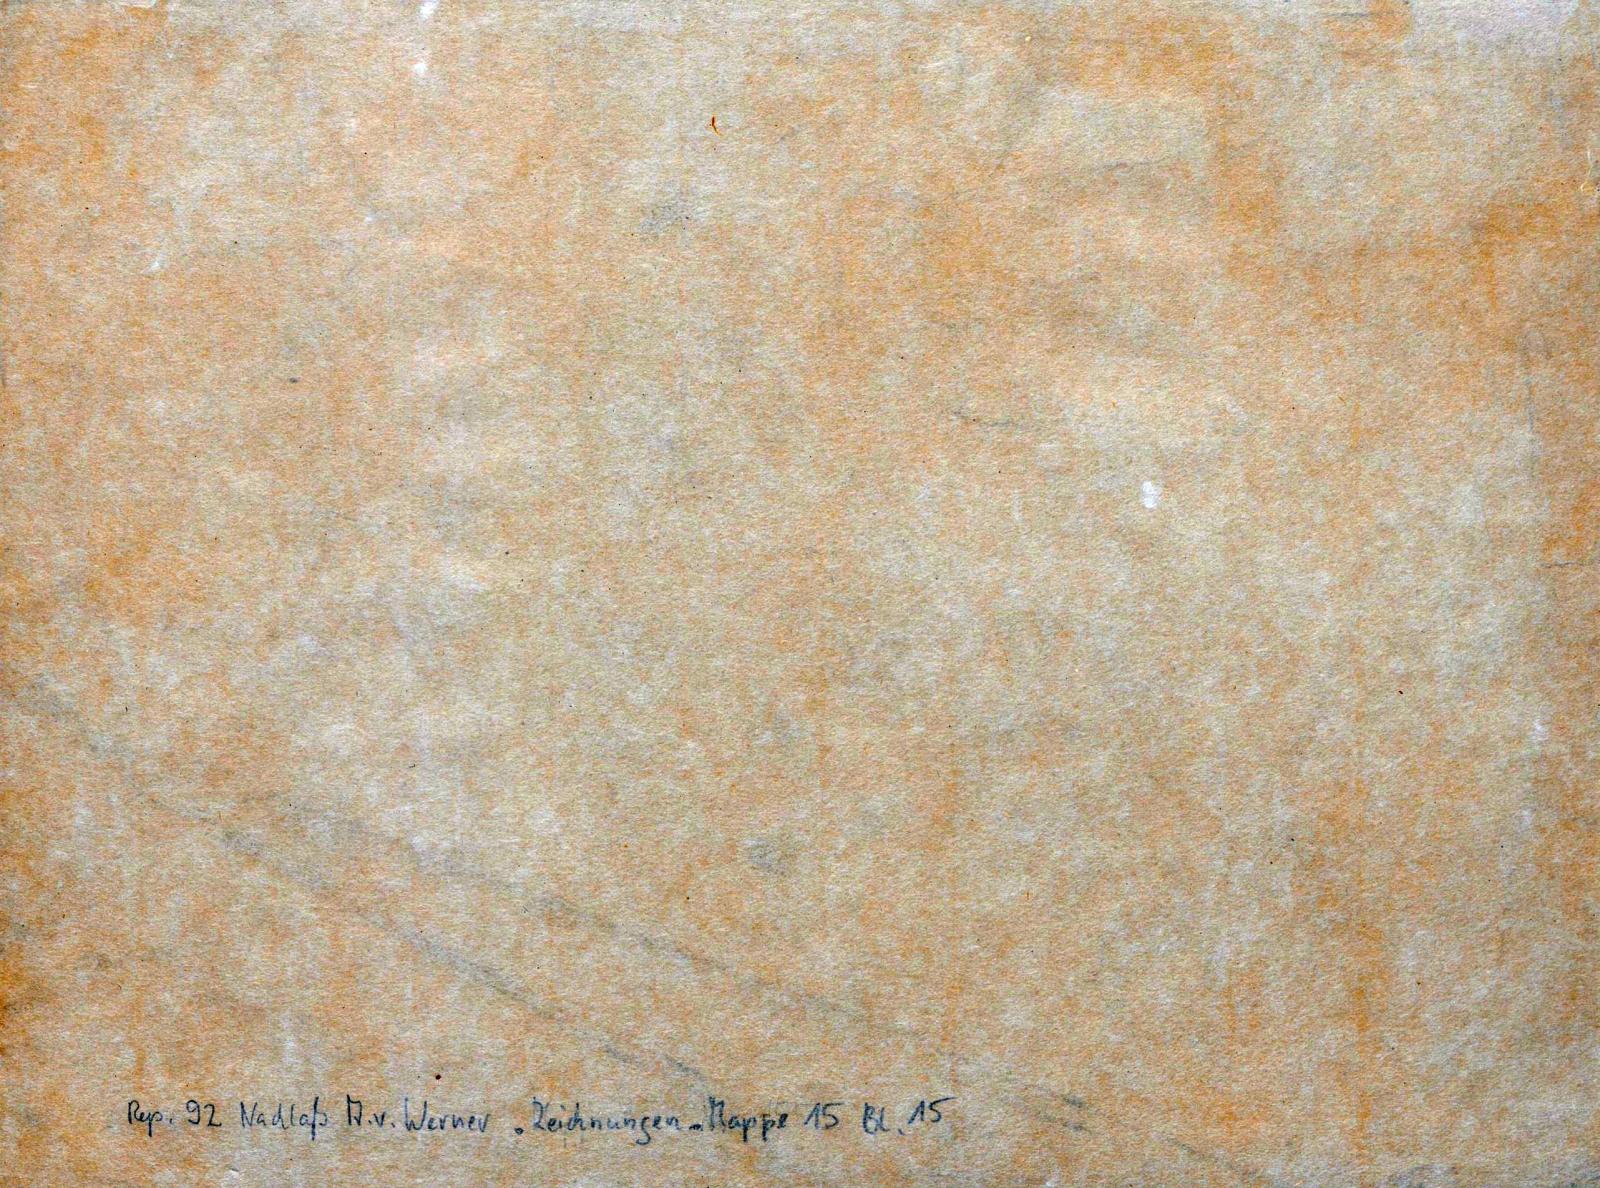 Rep. 92 Nachlaß A. v. Werner . Zeichnungen - Mappe 15 Bl. 15